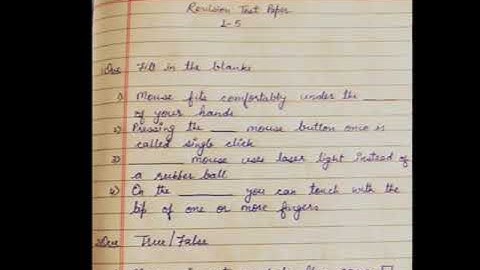 Revision Test Paper
1-5
1 Que Fill in the blanks
1) Mouse fits comfortably under the ____
of your hands
2) Pressing the ____ mouse button once is
called single click
3) ________ mouse uses laser light instead of
a rubber ball
4) On the ________ you can touch with the
tip of one or more fingers
2 Que True/False